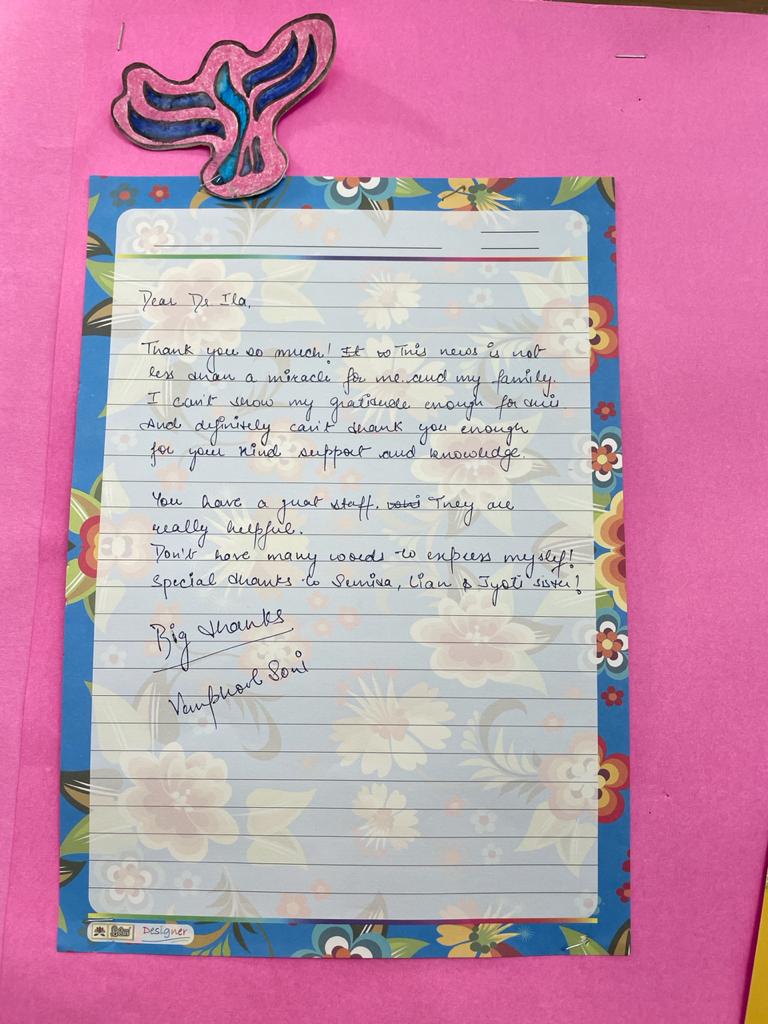 Dear Dr Ila,
Thank you so much! It This news is not
less than a miracle for me and my family.
I can't show my gratitude enough for this
And definitely can't thank you enough
for your kind support and knowledge.
You have a great staff. They are
really helpful.
Don't have many words to express myself!
Special thanks to Lian & Jyoti sister!
Big thanks
Soni
Designer